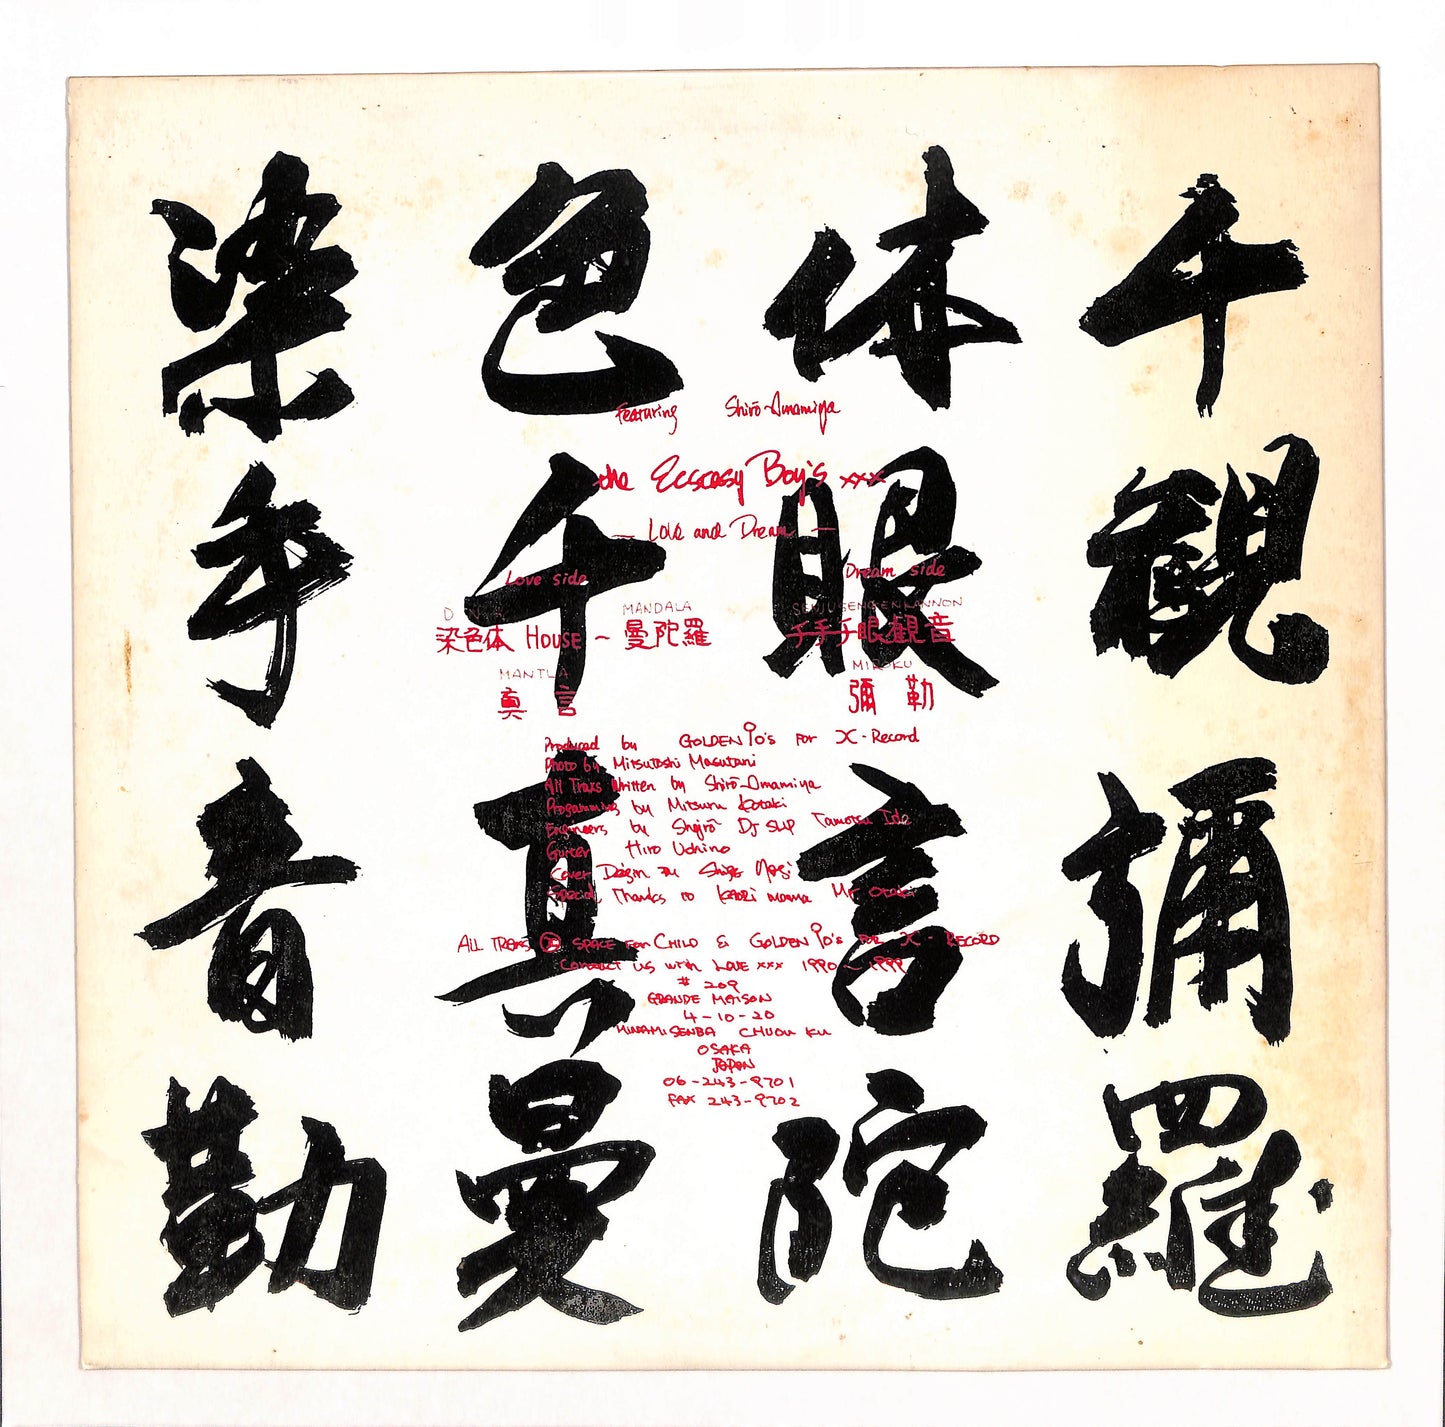 染色体千
手千眼観
音真言彌
勒曼陀羅
Featuring Shirō-Amamiya
the Ecstasy Boy's xxx
— Love and Dream —
Love side
Dream side
DNA
MANDALA
SENJUSENGENKANNON
染色体 HOUSE ~ 曼陀羅
千手千眼観音
MANTLA
MIROKU
真言
彌勒
Produced by GOLDEN Yo's For X-Record
Photo by Mitsutoshi Masutani
All Traxs Written by Shirō-Amamiya
Programming by Mitsuru Kotaki
Engineers by Shojirō DJ SLIP Tamotsu Ide
Guitar Hiro Uchino
Cover Design Shige
Special Thanks to KAORI mama Mr Otaki
ALL TRAXS SPACE FOR CHILD & GOLDEN Yo's FOR X-RECORD
CONTACT US with LOVE xxx 1990~1999
# 209
GRANDE MAISON
4-10-20
MINAMISENBA CHUOU KU
OSAKA
JAPAN
06-243-9701
FAX 243-9702